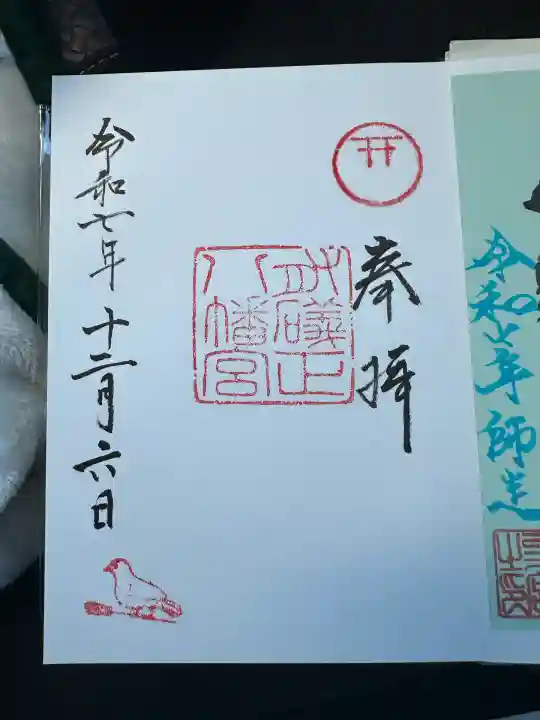 奉拝
正
八幡宮
令和七年十二月六日
令和七年師走